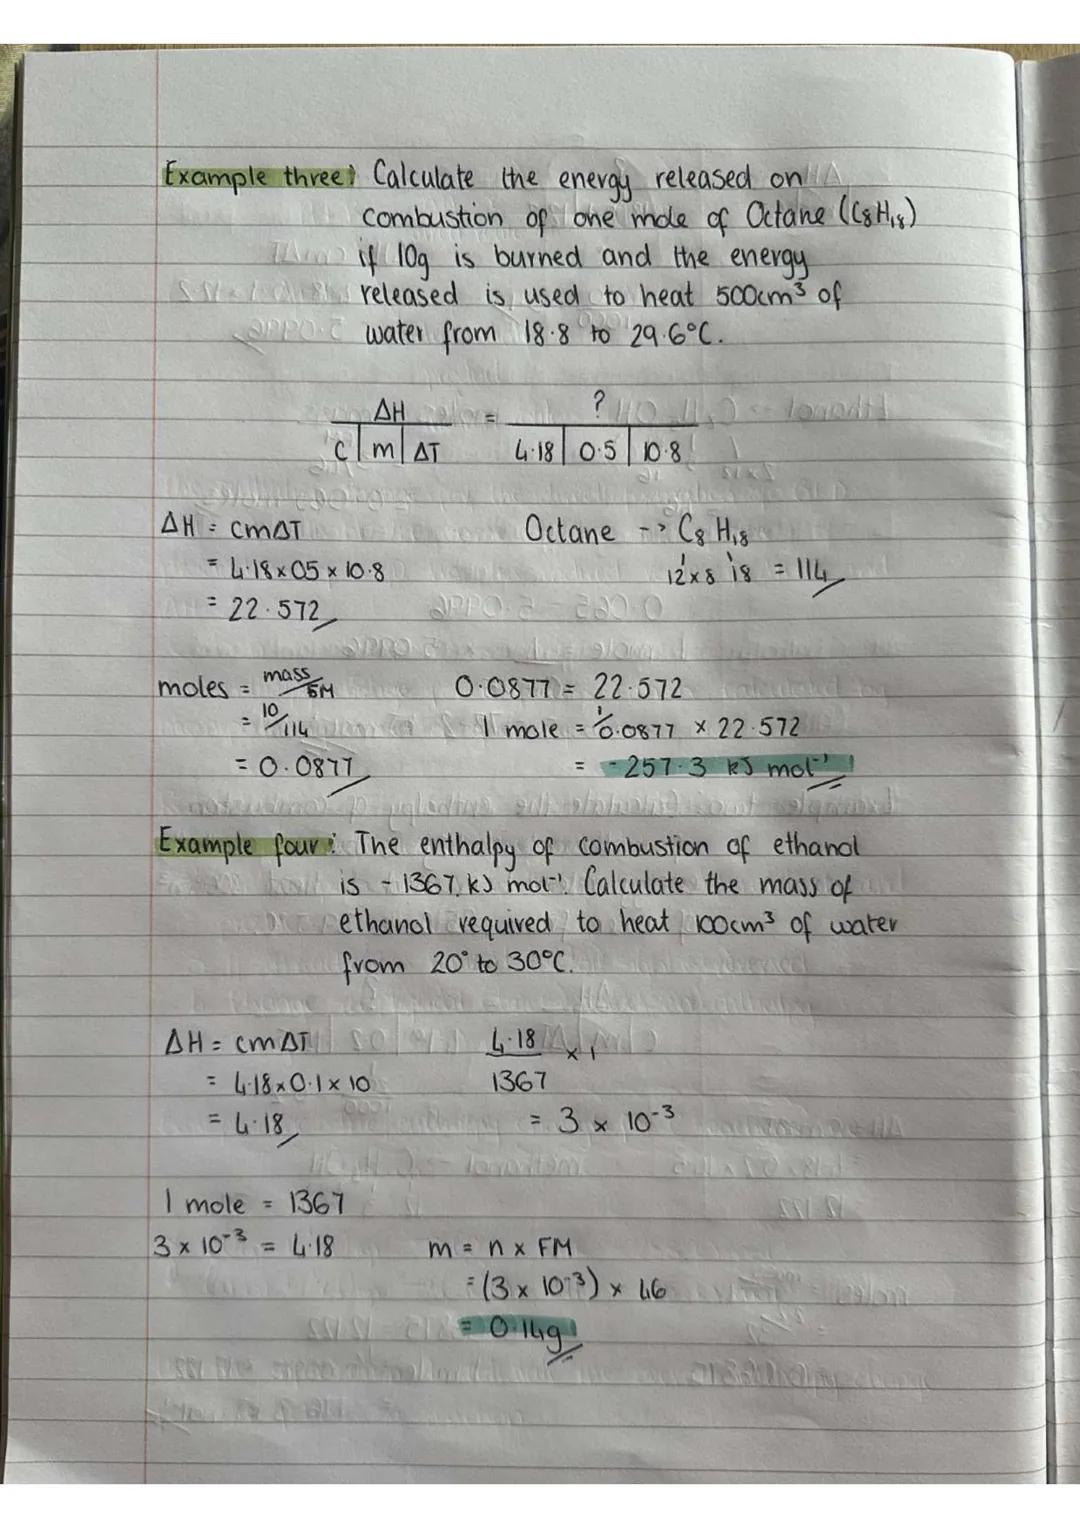 Example three: Calculate the energy released on
combustion of one mole of Octane (C8H18)
if 10g is burned and the energy
released is used to heat 500cm³ of
water from 18.8 to 29.6°C.
ΔH = ?
c | m | ΔT 4.18 | 0.5 | 10.8
ΔH = cmΔT Octane --> C8 H18
= 4.18 x 05 x 10.8 12x8 18 = 114
= 22.572
moles = mass/GM 0.0877 = 22.572
= 10/114 1 mole = 1/0.0877 x 22.572
= 0.0877 = -257.3 kJ mol⁻¹
Example four: The enthalpy of combustion of ethanol
is -1367 kJ mol⁻¹. Calculate the mass of
ethanol required to heat 100cm³ of water
from 20° to 30°C.
ΔH = cmΔT 4.18/1367 x 1
= 4.18x0.1x10
= 4.18 = 3 x 10⁻³
1 mole = 1367
3 x 10⁻³ = 4.18 m = n x FM
= (3 x 10⁻³) x 46
= 0.14g